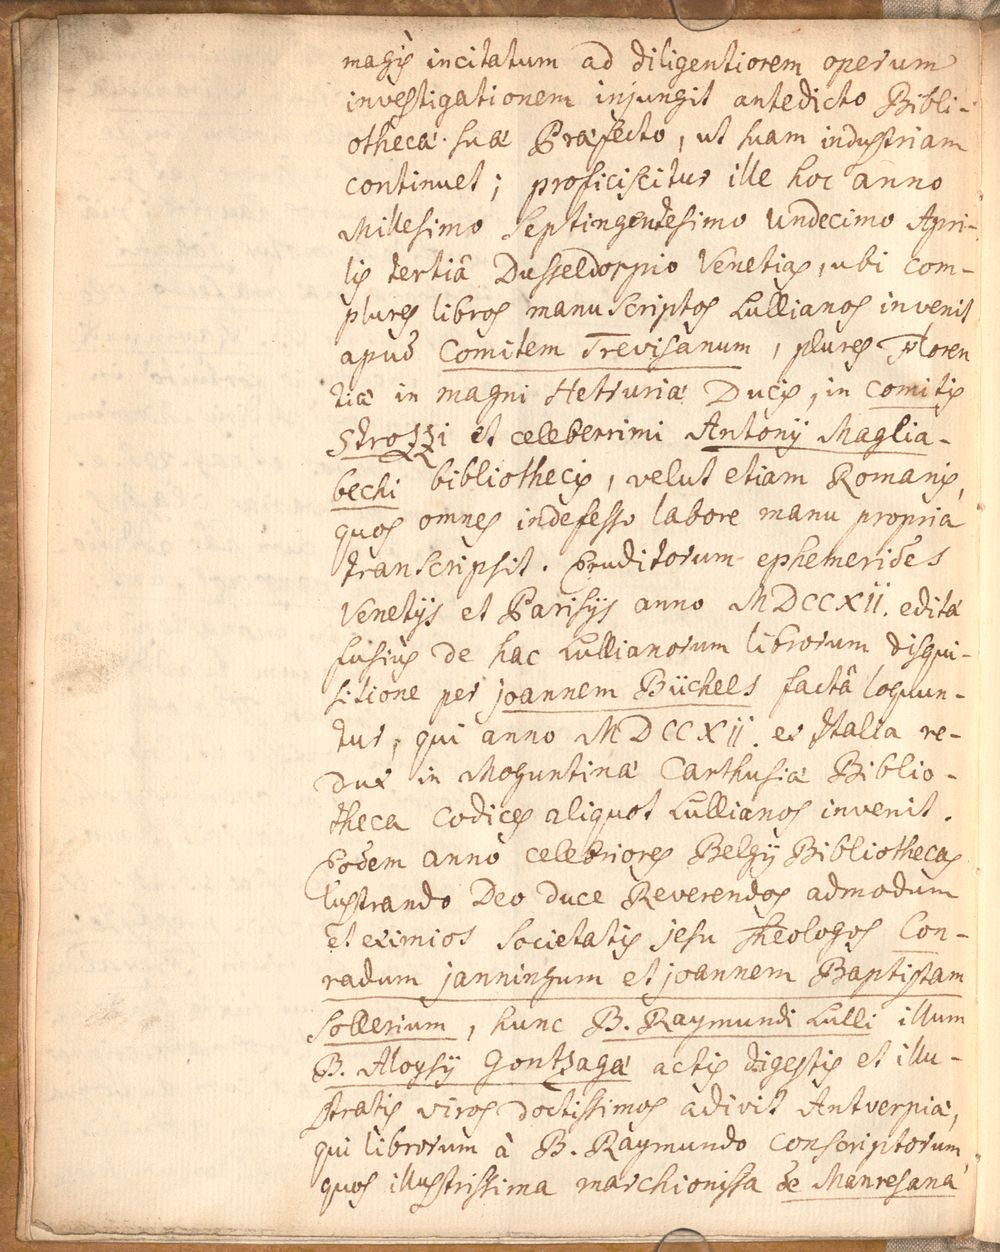 magis incitatum ad diligentiorem operum
investigationem injungit antedicto Bibli-
othecæ suæ Præfecto, ut suam industriam
continuet; proficiscitur ille hoc anno
Millesimo Septingentesimo Undecimo Apri-
lis tertiâ Dusseldorpio Venetias, ubi com-
plures libros manuscriptos Lullianos invenit
apud Comitem Trevisanum, plures Floren
tiæ in magni Hetruriæ Ducis, in comitis
Strozzi et celeberrimi Antonij Maglia-
bechi bibliothecis, velut etiam Romanis,
quos omnes indefesso labore manu propria
transcripsit. Eruditorum ephemerides
Venetijs et Parisijs anno MDCCXII. editæ
fusius de hac Lullianorum librorum disqui-
sitione per joannem Büchels factâ loquun-
tur, qui anno MDCCXII. ex Italia re-
dux in Moguntinæ Carthusiæ Biblio-
theca Codices aliquot Lullianos invenit.
Eodem anno celebriores Belgij Bibliothecas
lustrando Deo duce Reverendos admodum
et eximios Societatis jesu Theologos Con-
radum janningum et joannem Baptistam
Sollerium, hunc B. Raymundi Lulli illum
B. Aloysij Gontzagæ actis digestis et illu-
stratis viros doctissimos adivit Antverpiæ,
qui librorum à B. Raymundo conscriptorum,
quos illustrissima marchionissa de Manresana